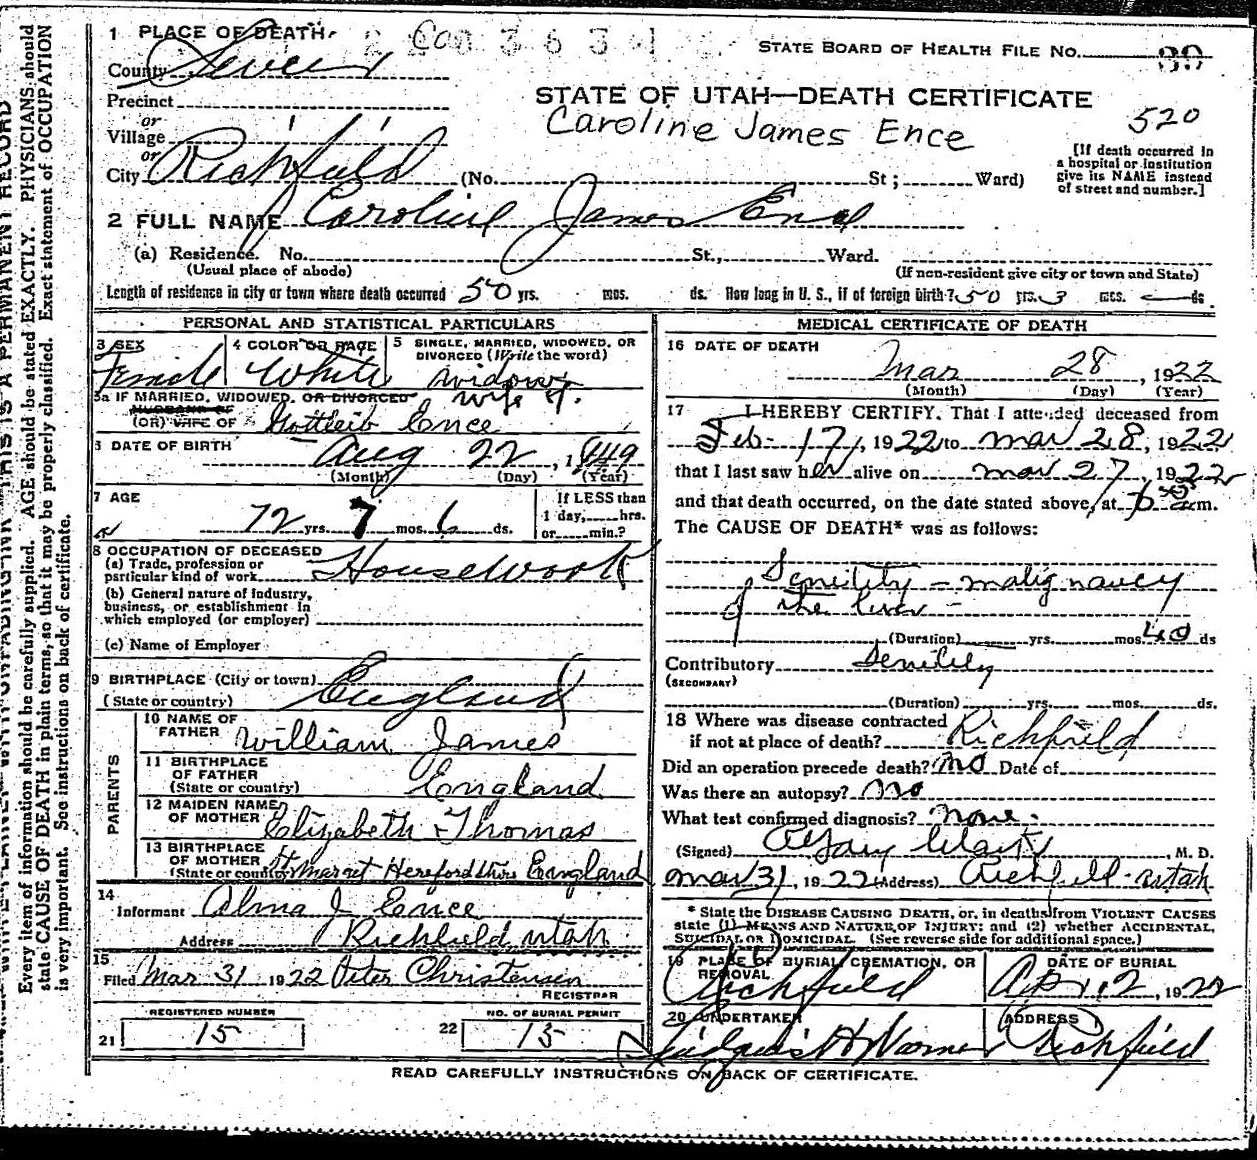 1 PLACE OF DEATH
County Sevier Co
STATE BOARD OF HEALTH FILE NO.
STATE OF UTAH—DEATH CERTIFICATE
Precinct
or
Village
or
City Richfield (No. St; Ward)
Caroline James Ence
520
[If death occurred in
a hospital or institution
give its NAME instead
of street and number.]
2 FULL NAME Caroline James Ence
(a) Residence. No. St., Ward.
(Usual place of abode) (If non-resident give city or town and State)
Length of residence in city or town where death occurred 50 yrs. mos. ds. How long in U. S., if of foreign birth? 50 yrs. 3 mos. ds.
PERSONAL AND STATISTICAL PARTICULARS
3 SEX Female
4 COLOR OR RACE White
5 SINGLE, MARRIED, WIDOWED, OR
DIVORCED (Write the word)
widow
3a IF MARRIED, WIDOWED, OR DIVORCED wife of.
HUSBAND OF
(OR) WIFE OF Gottleib Ence
6 DATE OF BIRTH Aug 22, 1849
(Month) (Day) (Year)
7 AGE
72 yrs. 7 mos. 6 ds.
If LESS than
1 day, hrs.
or min.?
8 OCCUPATION OF DECEASED
(a) Trade, profession or
particular kind of work Housework
(b) General nature of industry,
business, or establishment in
which employed (or employer)
(c) Name of Employer
9 BIRTHPLACE (City or town)
(State or country) England
PARENTS
10 NAME OF
FATHER William James
11 BIRTHPLACE
OF FATHER
(State or country) England
12 MAIDEN NAME
OF MOTHER Elizabeth Thomas
13 BIRTHPLACE
OF MOTHER
(State or country) Herefordshire England
14
Informant Alma J Ence
Address Richfield, Utah
15
Filed Mar 31 1922 Peter Christensen
REGISTRAR
REGISTERED NUMBER
21 15
NO. OF BURIAL PERMIT
22 15
MEDICAL CERTIFICATE OF DEATH
16 DATE OF DEATH
Mar 28, 1922
(Month) (Day) (Year)
17 I HEREBY CERTIFY. That I attended deceased from
Feb 17, 1922 to Mar 28, 1922
that I last saw her alive on Mar 27, 1922
and that death occurred, on the date stated above, at m.
The CAUSE OF DEATH* was as follows:
Senility - malignancy
of the liver -
(Duration) yrs. mos. 40 ds
Contributory Senility
(SECONDARY)
(Duration) yrs. mos. ds.
18 Where was disease contracted
if not at place of death? Richfield
Did an operation precede death? no Date of
Was there an autopsy? no
What test confirmed diagnosis? none.
(Signed) , M. D.
Mar 31, 1922 (Address) Richfield Utah
* State the DISEASE CAUSING DEATH, or, in deaths from VIOLENT CAUSES
state (1) MEANS AND NATURE OF INJURY; and (2) whether ACCIDENTAL,
SUICIDAL OR HOMICIDAL. (See reverse side for additional space.)
19 PLACE OF BURIAL, CREMATION, OR
REMOVAL
Richfield
DATE OF BURIAL
Apr. 2, 1922
20 UNDERTAKER
H Warner
ADDRESS
Richfield
READ CAREFULLY INSTRUCTIONS ON BACK OF CERTIFICATE.
Every item of information should be carefully supplied. AGE should be stated EXACTLY. PHYSICIANS should
state CAUSE OF DEATH in plain terms, so that it may be properly classified. Exact statement of OCCUPATION
is very important. See instructions on back of certificate.